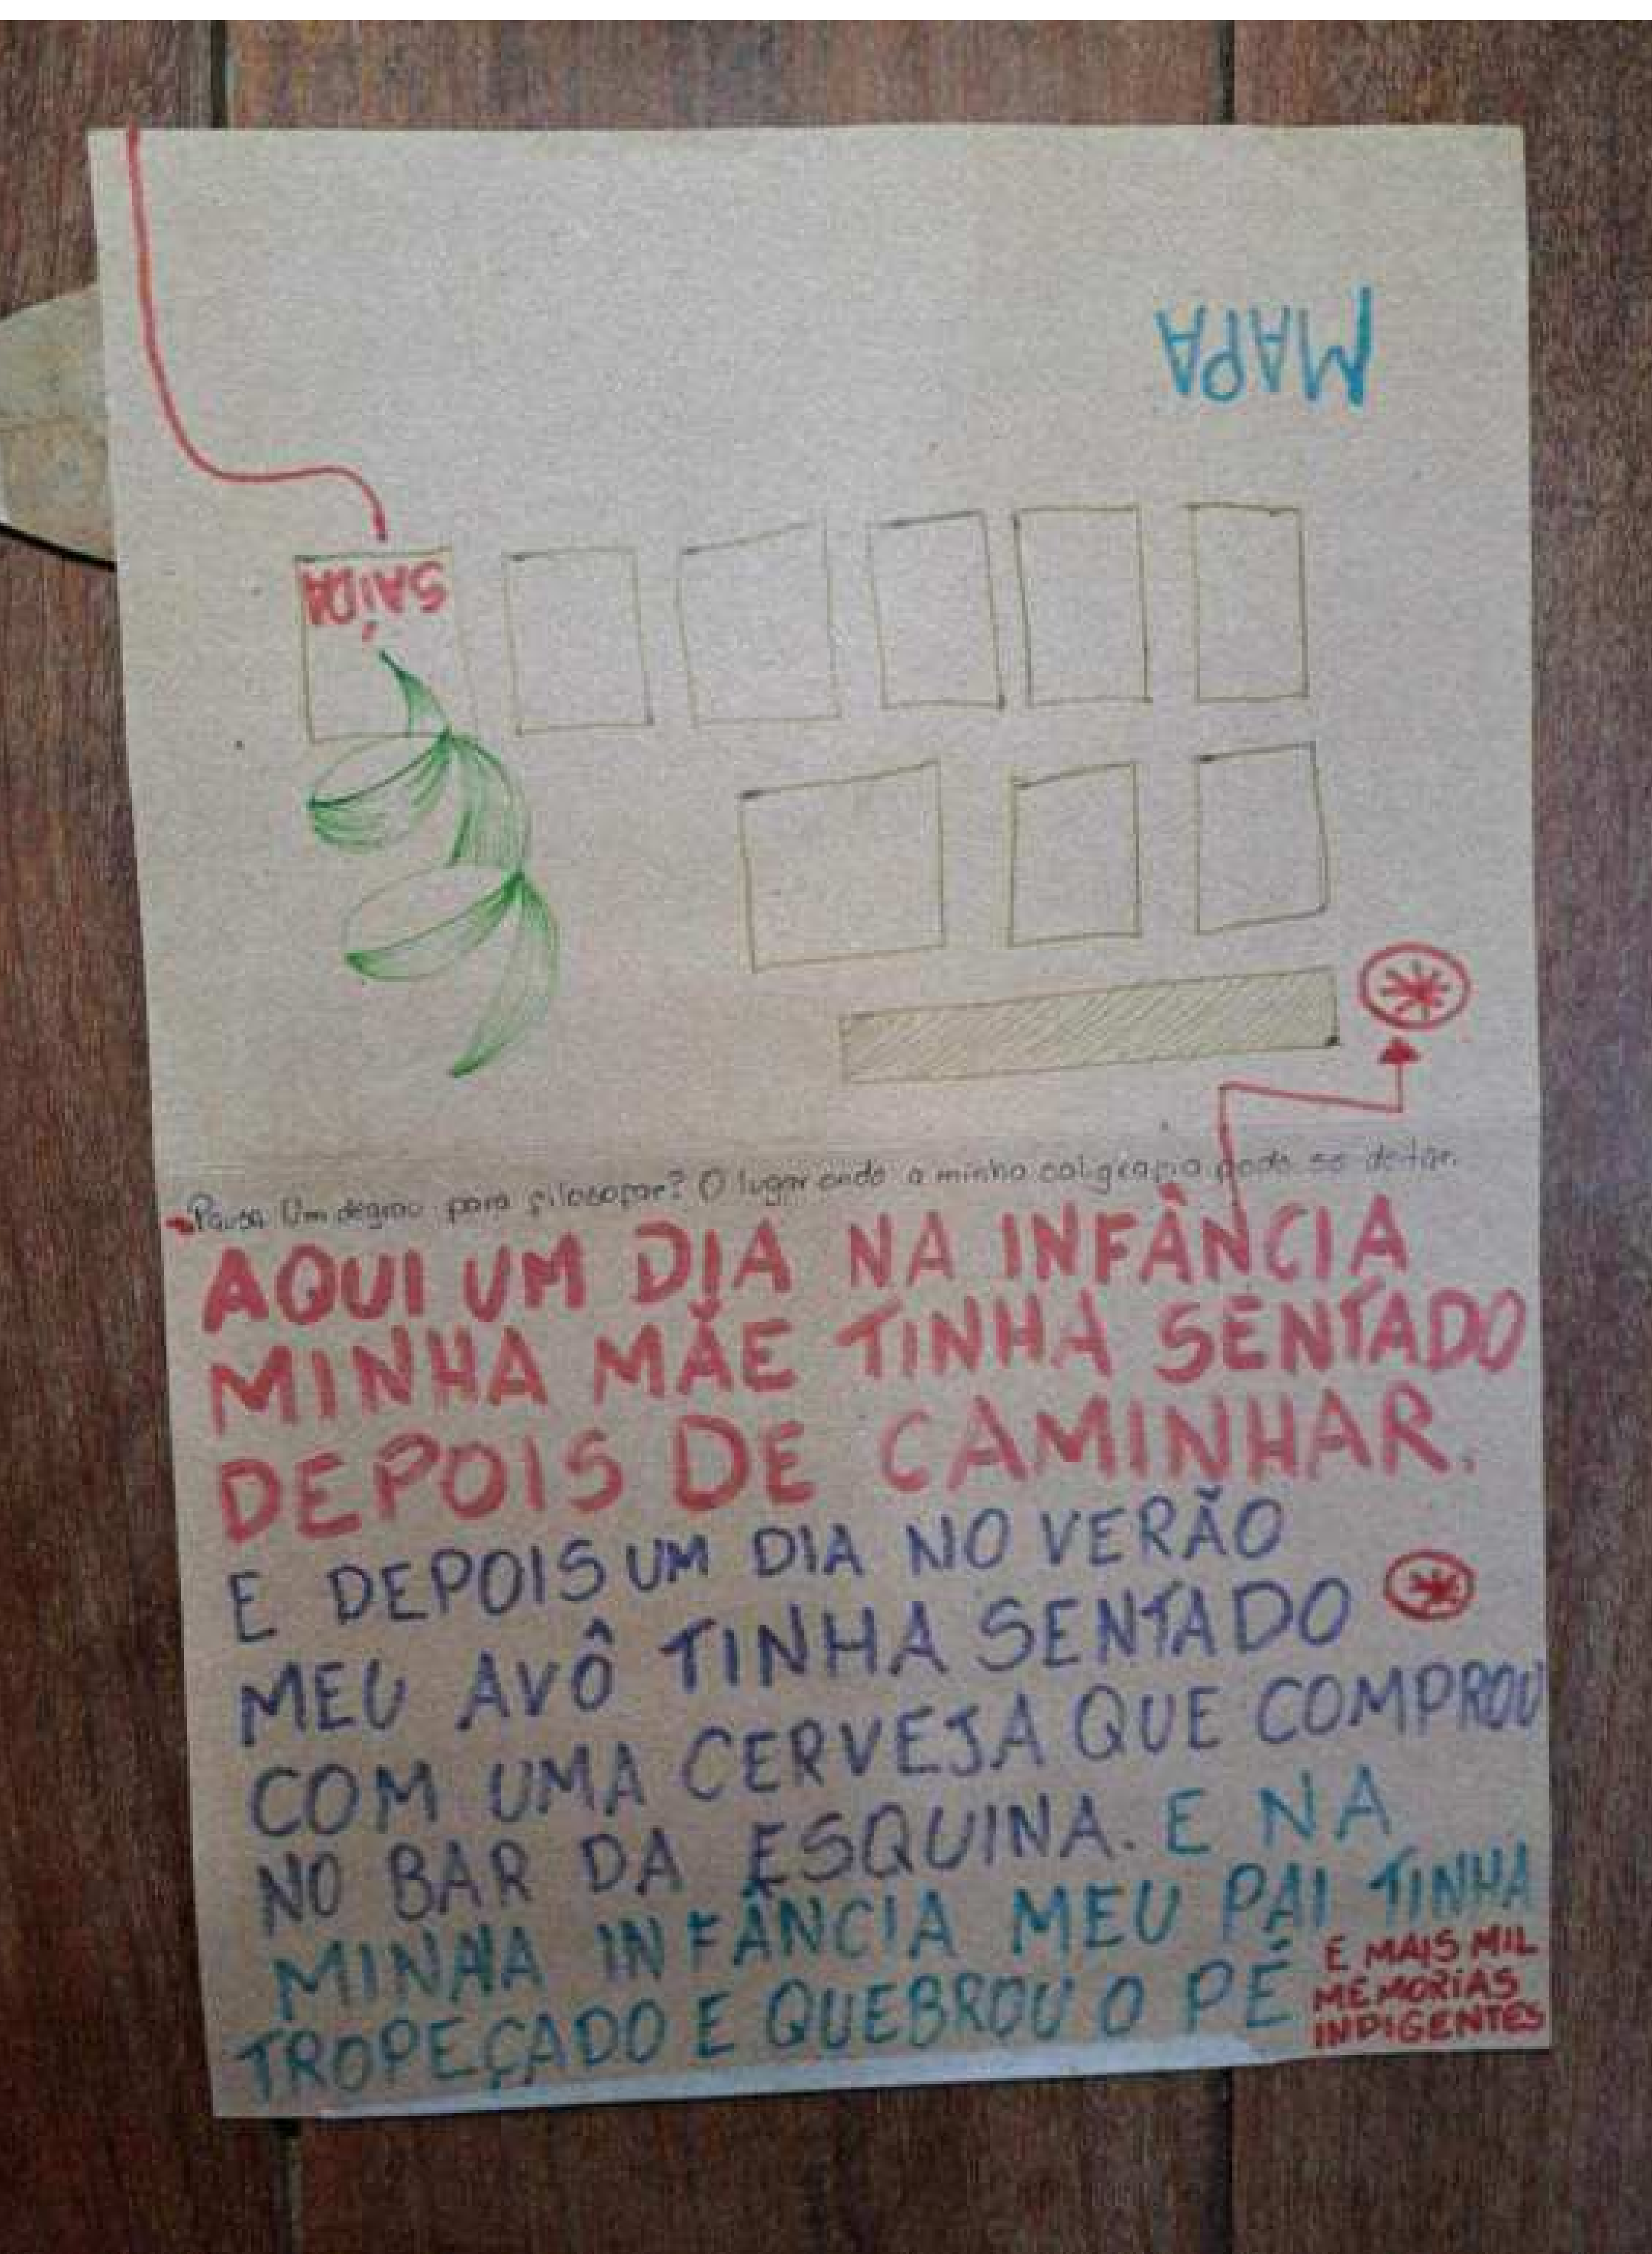 MAPA
SAÍDA
Pausa Um degrau para filosofar? O lugar onde a minha caligrafia pode se deitar.
AQUI UM DIA NA INFÂNCIA
MINHA MÃE TINHA SENTADO
DEPOIS DE CAMINHAR.
E DEPOIS UM DIA NO VERÃO
MEU AVÔ TINHA SENTADO
COM UMA CERVEJA QUE COMPROU
NO BAR DA ESQUINA. E NA
MINHA INFÂNCIA MEU PAI TINHA
TROPEÇADO E QUEBROU O PÉ
E MAIS MIL
MEMORIAS
INDIGENTES